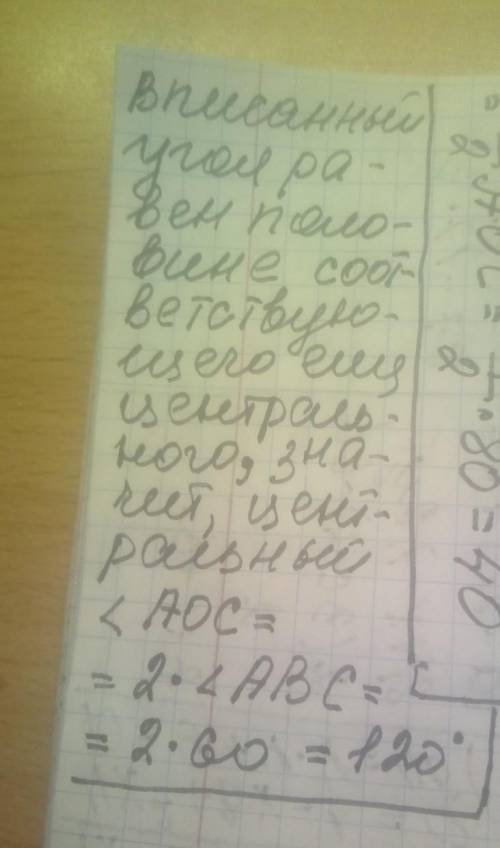 Вписанный
угол ра-
вен поло-
вине соот-
ветствую-
щего ему
централь-
ного, зна-
чит, цент-
ральный
< AOC =
= 2 · < ABC =
= 2 · 60 = 120°